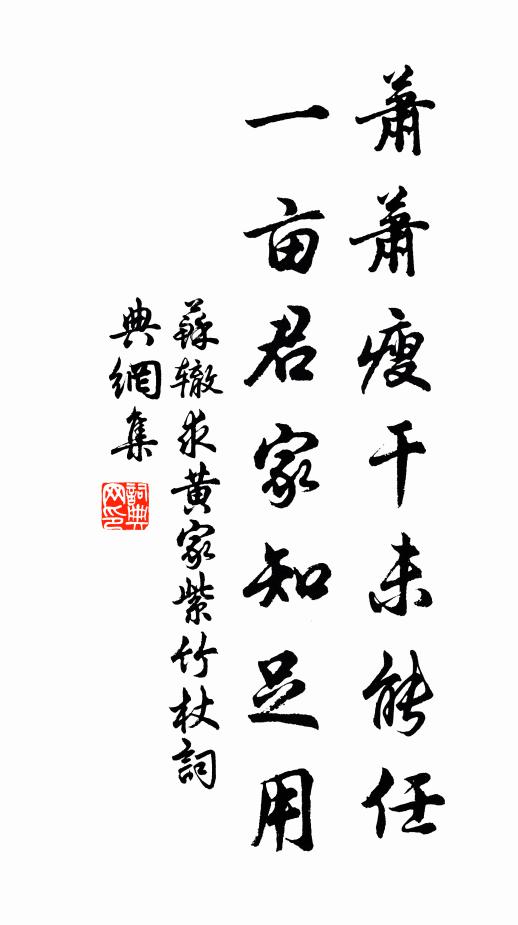 蕭蕭瘦干未能任
一亩君家知足用
蘇辙求黄家紫竹杖詞
典網集
詞典
网印